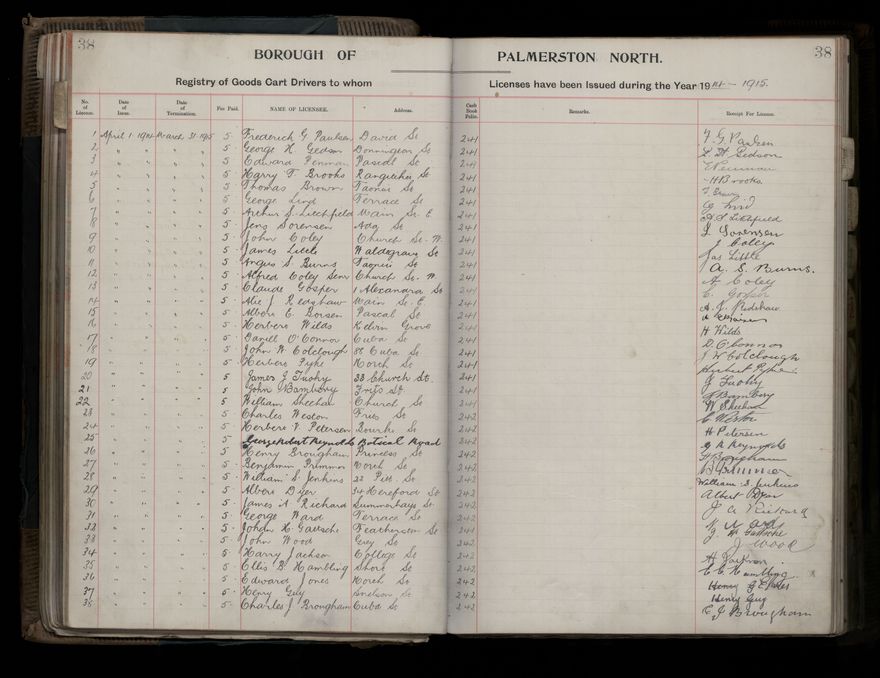 38
38
BOROUGH OF PALMERSTON NORTH.
Registry of Goods Cart Drivers to whom Licenses have been Issued during the Year 1914 - 1915.
No. of License. Date of Issue. Date of Termination. Fee Paid. NAME OF LICENSEE. Address. Cash Book Folio. Remarks. Receipt For License.
1 April 1 1914 March 31 1915 5 Frederick G Paulsen David St 241 F. G. Paulsen
2 " " " " 5 George H Gedson Donnington St 241 Gedson
3 " " " " 5 Edward Penman Pascal St 241
4 " " " " 5 Harry T Brooks Rangitikei St 241 H Brooks
5 " " " " 5 Thomas Brown Taonui St 241 T. Brown
6 " " " " 5 George Lind Terrace St 241 G Lind
7 " " " " 5 Arthur S. Litchfield Main St. E 241 A S Litchfield
8 " " " " 5 Jens Sorensen Ada St 241 J Sorensen
9 " " " " 5 John Coley Church St. W. 241 J Coley
10 " " " " 5 James Little Waldegrave St 241 Jas Little
11 " " " " 5 Angus S Burns Taonui St 241 A. S. Burns.
12 " " " " 5 Alfred Coley Senr Church St. W. 241 A Coley
13 " " " " 5 Claude Gosper 1 Alexandra St 241 C. Gosper
14 " " " " 5 Alic J Redshaw Main St. E 241 A. J. Redshaw
15 " " " " 5 Albert E. Pascal St 241
16 " " " " 5 Herbert Wilds Kelvin Grove 241 H Wilds
17 " " " " 5 Daniel O'Connor Cuba St 241 D. O'Connor
18 " " " " 5 John W. Colclough 88 Cuba St. 241 J W Colclough
19 " " " " 5 Herbert Pyke North St 241 Herbert Pyke
20 " " " " 5 James J Tuohy 33 Church St. 241 J Tuohy
21 " " " " 5 John Bambery Fitts St. 241 J Bambery
22 " " " " 5 William Sheehan Church St 241 W Sheehan
23 " " " " 5 Charles Weston Fitts St 242 C Weston
24 " " " " 5 Herbert V. Petersen Bourke St 242 H Petersen
25 " " " " 5 George Robert Reynolds Botical Road 242 G R Reynolds
26 " " " " 5 Henry Brougham Princess St 242 H Brougham
27 " " " " 5 Benjamin Primmer North St 242 B Primmer
28 " " " " 5 William S. Jenkins 22 Pitt St 242 William S. Jenkins
29 " " " " 5 Albert Dyer 34 Hereford St 242 Albert Dyer
30 " " " " 5 James A Richard Summerhays St 242 J A Richard
31 " " " " 5 George Ward Terrace St 242 G Ward
32 " " " " 5 Johan H. Gaetsche Featherston St 242 J H Gaetsche
33 " " " " 5 John Wood Grey St 242 J Wood
34 " " " " 5 Harry Jackson College St 242 H Jackson
35 " " " " 5 Ellis B. Hambling Shore St 242 E. B. Hambling
36 " " " " 5 Edward Jones North St 242
37 " " " " 5 Henry Guy Snelson St 242 Henry Guy
38 " " " " 5 Charles J Brougham Cuba St 242 C J Brougham